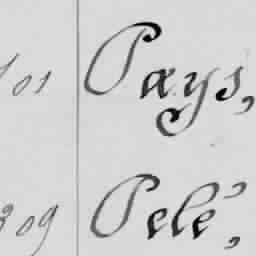 101 Pays,
309 Pelé,